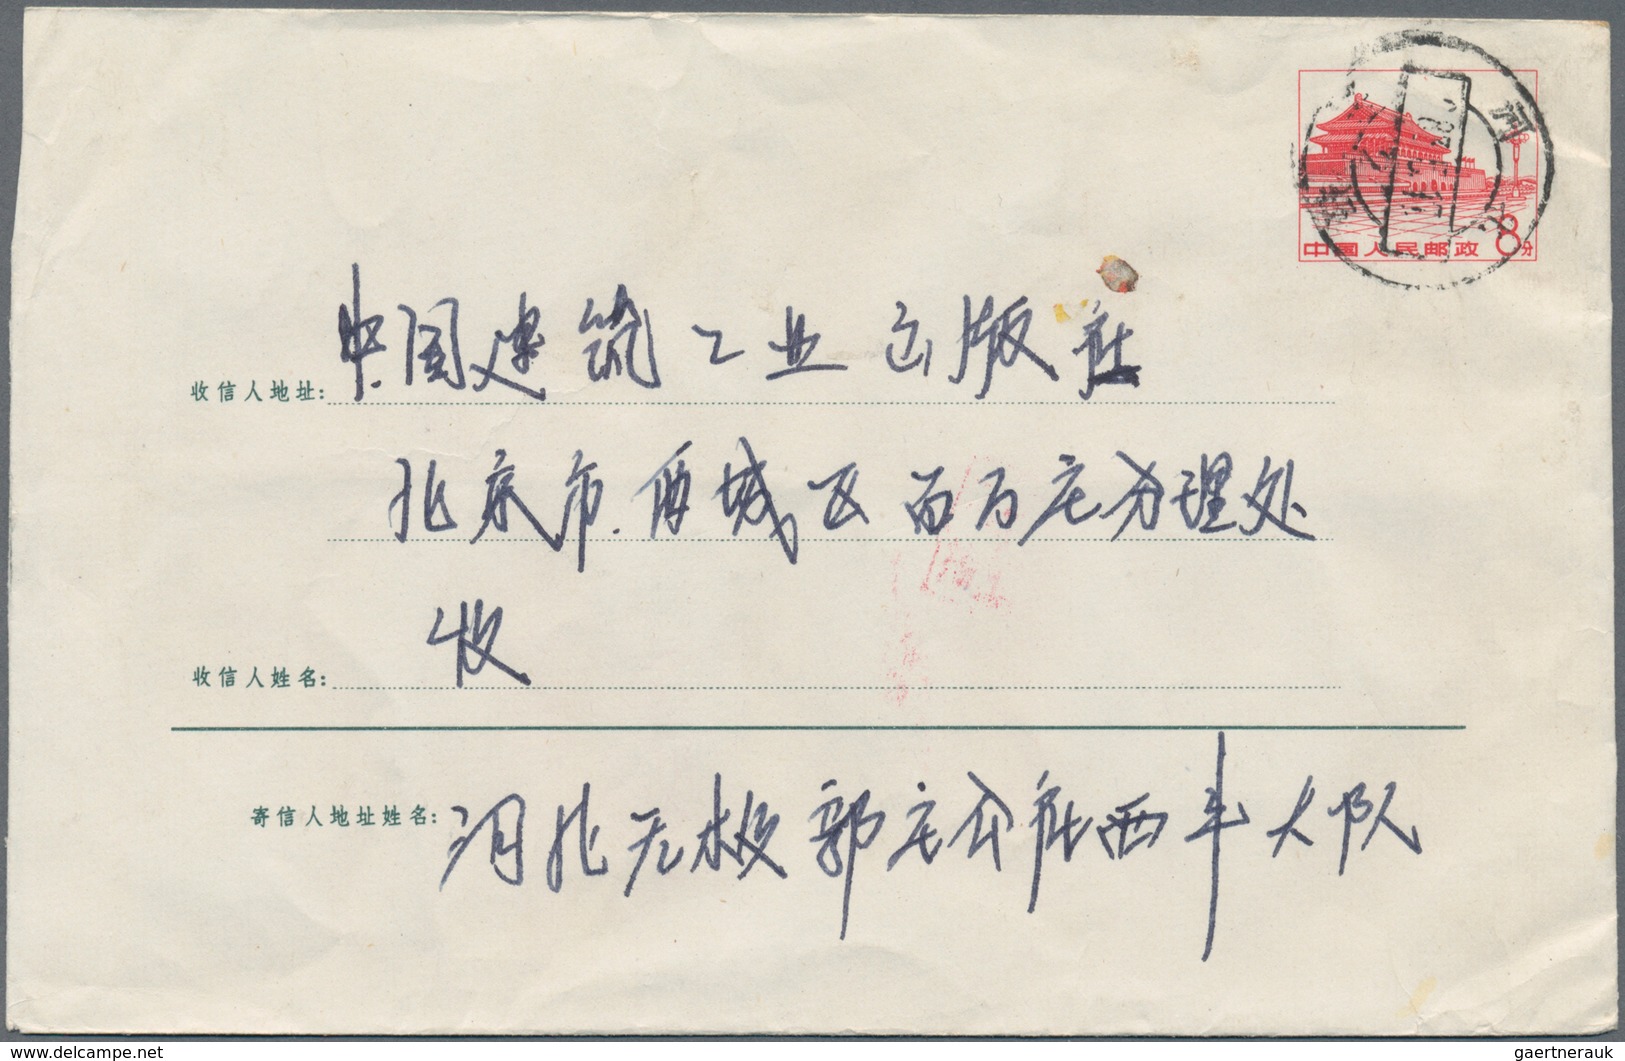 中国人民邮政 8分
河
中国建筑工业出版社
收信人地址:
北京市.西城区百万庄分理处
收
收信人姓名:
寄信人地址姓名: 河北无极郭庄公社西丰大队
Delcampe.net
gaertnerauk